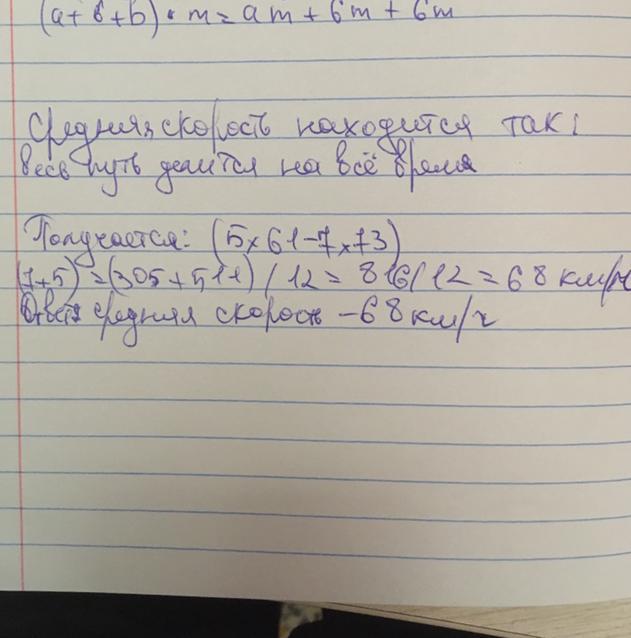 (a+б+b)•m=am+бm+бm
Средняя скорость находится так:
весь путь делится на всё время
Получается: (5×61-7×73)
(7+5)=(305+511)/12=816/12=68 км/ч
Ответ: средняя скорость -68 км/ч